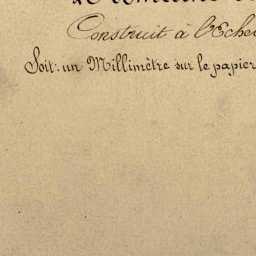 Construit à l'Eche
Soit: un Millimètre sur le papier